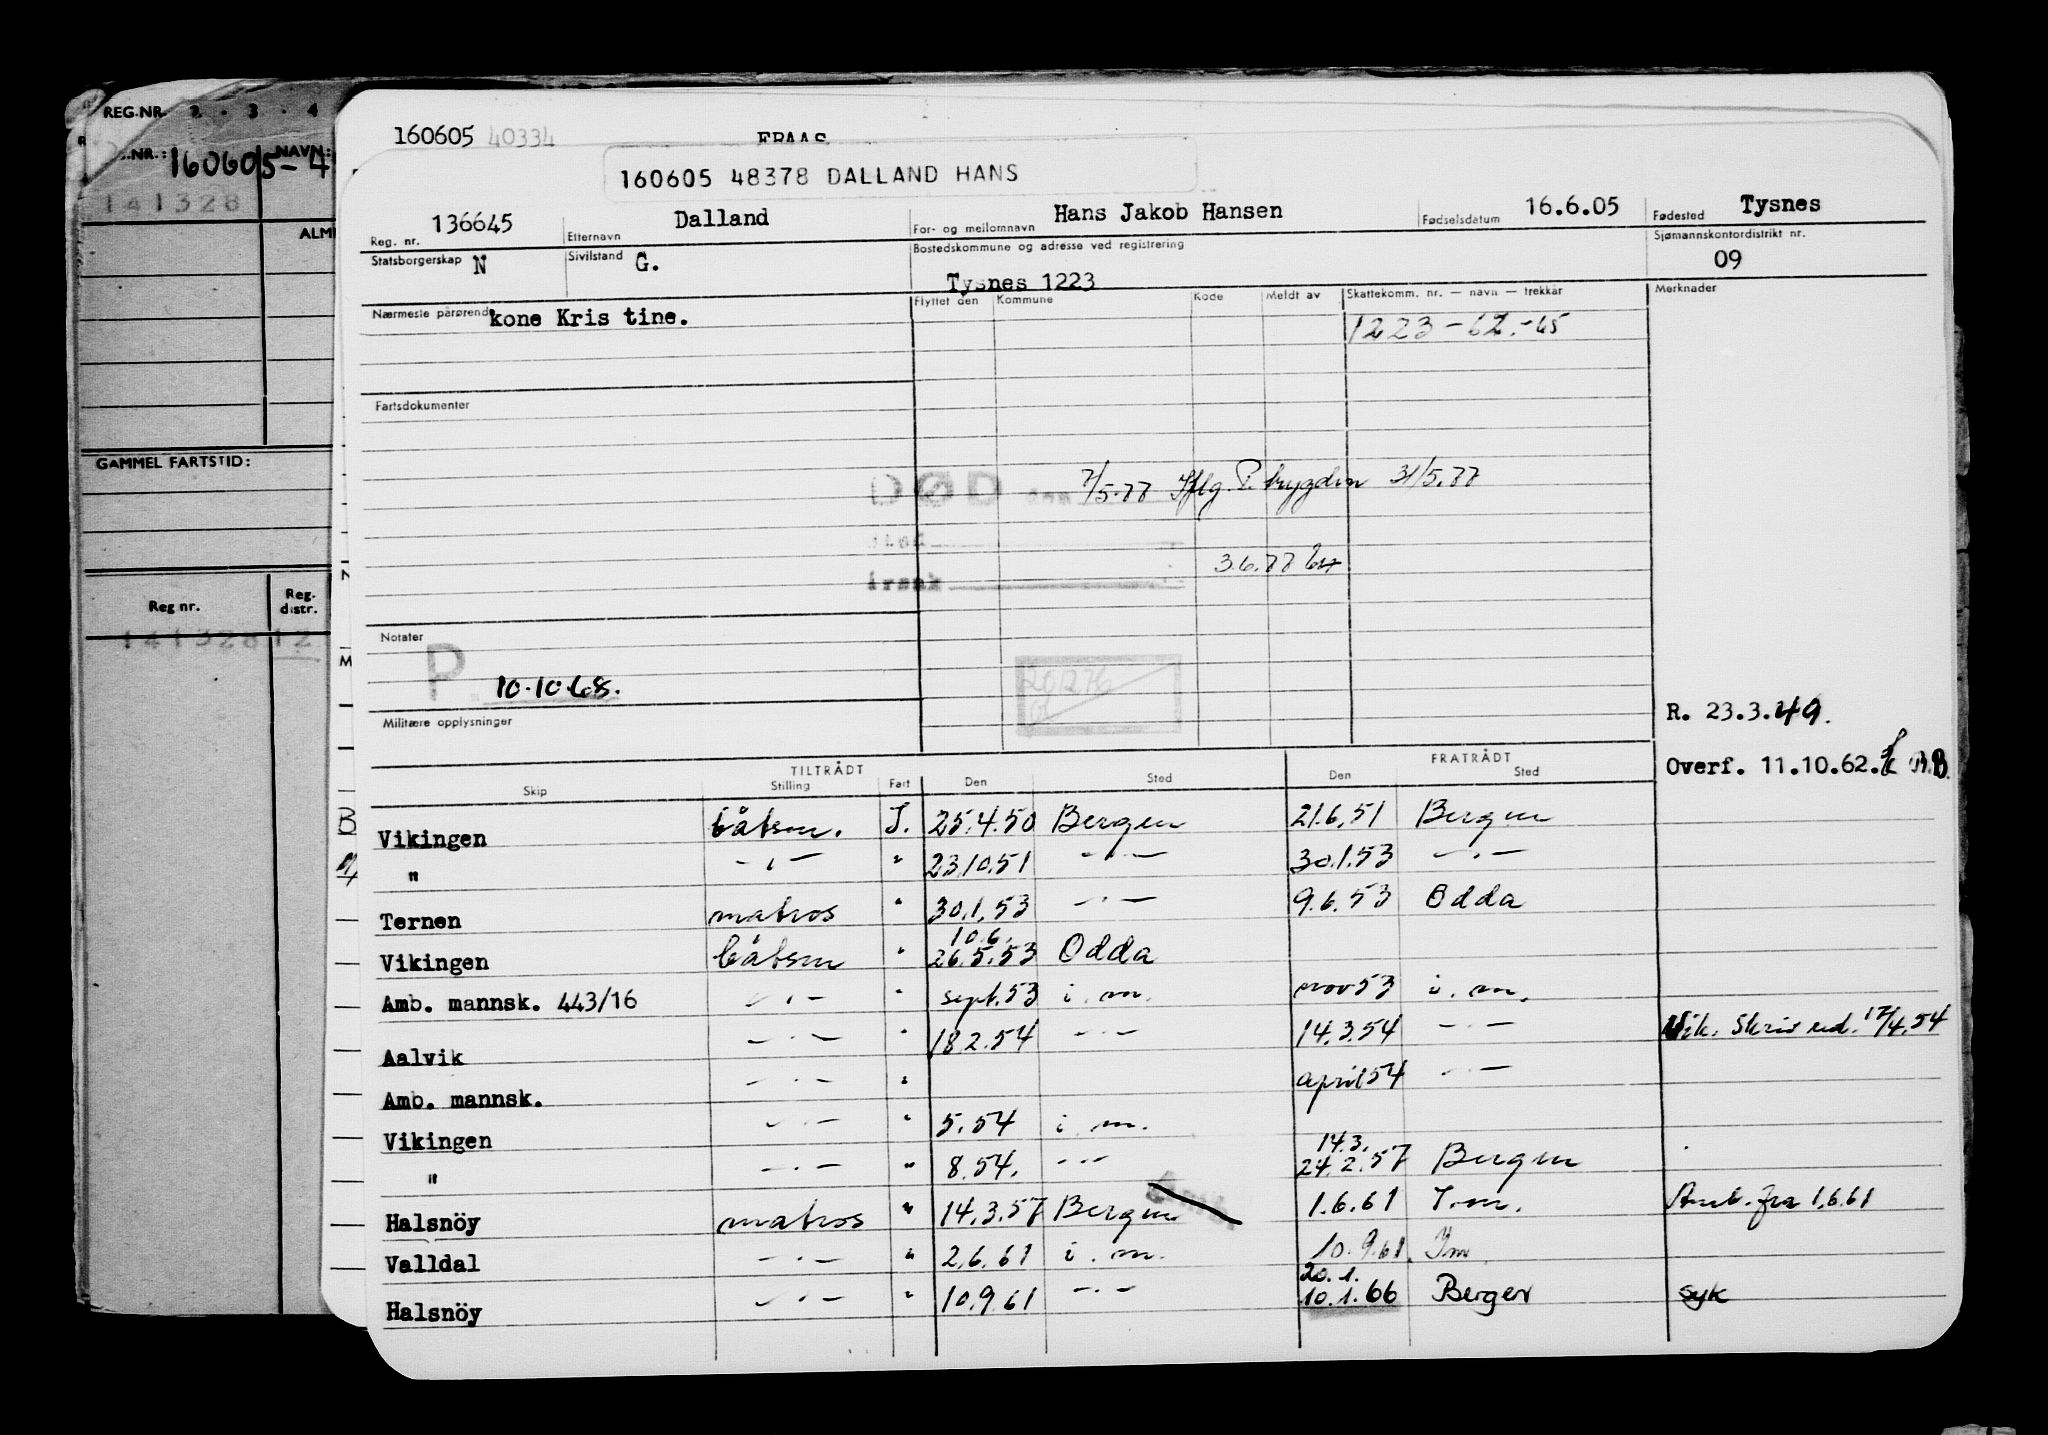 REG.NR. 2 . 3 . 4
NR.: 160605-4 NAVN:
141328
ALM
GAMMEL FARTSTID:
Reg nr. Reg. distr.
141328 12
160605 40334
160605 48378 DALLAND HANS
Reg. nr. 136645 Etternavn Dalland For- og mellomnavn Hans Jakob Hansen Fødselsdatum 16.6.05 Fødested Tysnes
Statsborgerskap N Sivilstand G. Bostedskommune og adresse ved registrering Tysnes 1223 Sjømannskontordistrikt nr. 09
Nærmeste pårørende kone Kris tine. Flyttet den Kommune Kode Meldt av Skattekomm. nr. — navn — trekkår Merknader
1223-62.-65
Fartsdokumenter
DØD den 7/5-77 Iflg. P. trygden 31/5.77
sted
årsak 3.6.77
Notater
P 10.10.68.
201276
Militære opplysninger
R. 23.3.49.
Overf. 11.10.62.
TILTRÅDT FRATRÅDT
Skip Stilling Fart Den Sted Den Sted
Vikingen båtsm. I. 25.4.50 Bergen 21.6.51 Bergen
" -"- " 23.10.51 -"- 30.1.53 -"-
Ternen matros " 30.1.53 -"- 9.6.53 Odda
10.6.
Vikingen båtsm " 26.5.53 Odda
Amb. mannsk. 443/16 -"- " sept.53 i.m. nov 53 i.m.
Aalvik -"- " 18.2.54 -"- 14.3.54 -"- Sik. Skriv red. 17/4.54
Amb. mannsk. -"- " april 54 -"-
Vikingen -"- " 5.54 i.m.
14.3.
" -"- " 8.54. -"- 24.2.57 Bergen
Halsnöy matros " 14.3.57 Bergen 1.6.61 I.m. Amb. fra 1.6.61
Valldal -"- " 2.6.61 i.m. 10.9.61 Im
20.1.
Halsnöy -"- " 10.9.61 -"- 10.1.66 Bergen syk